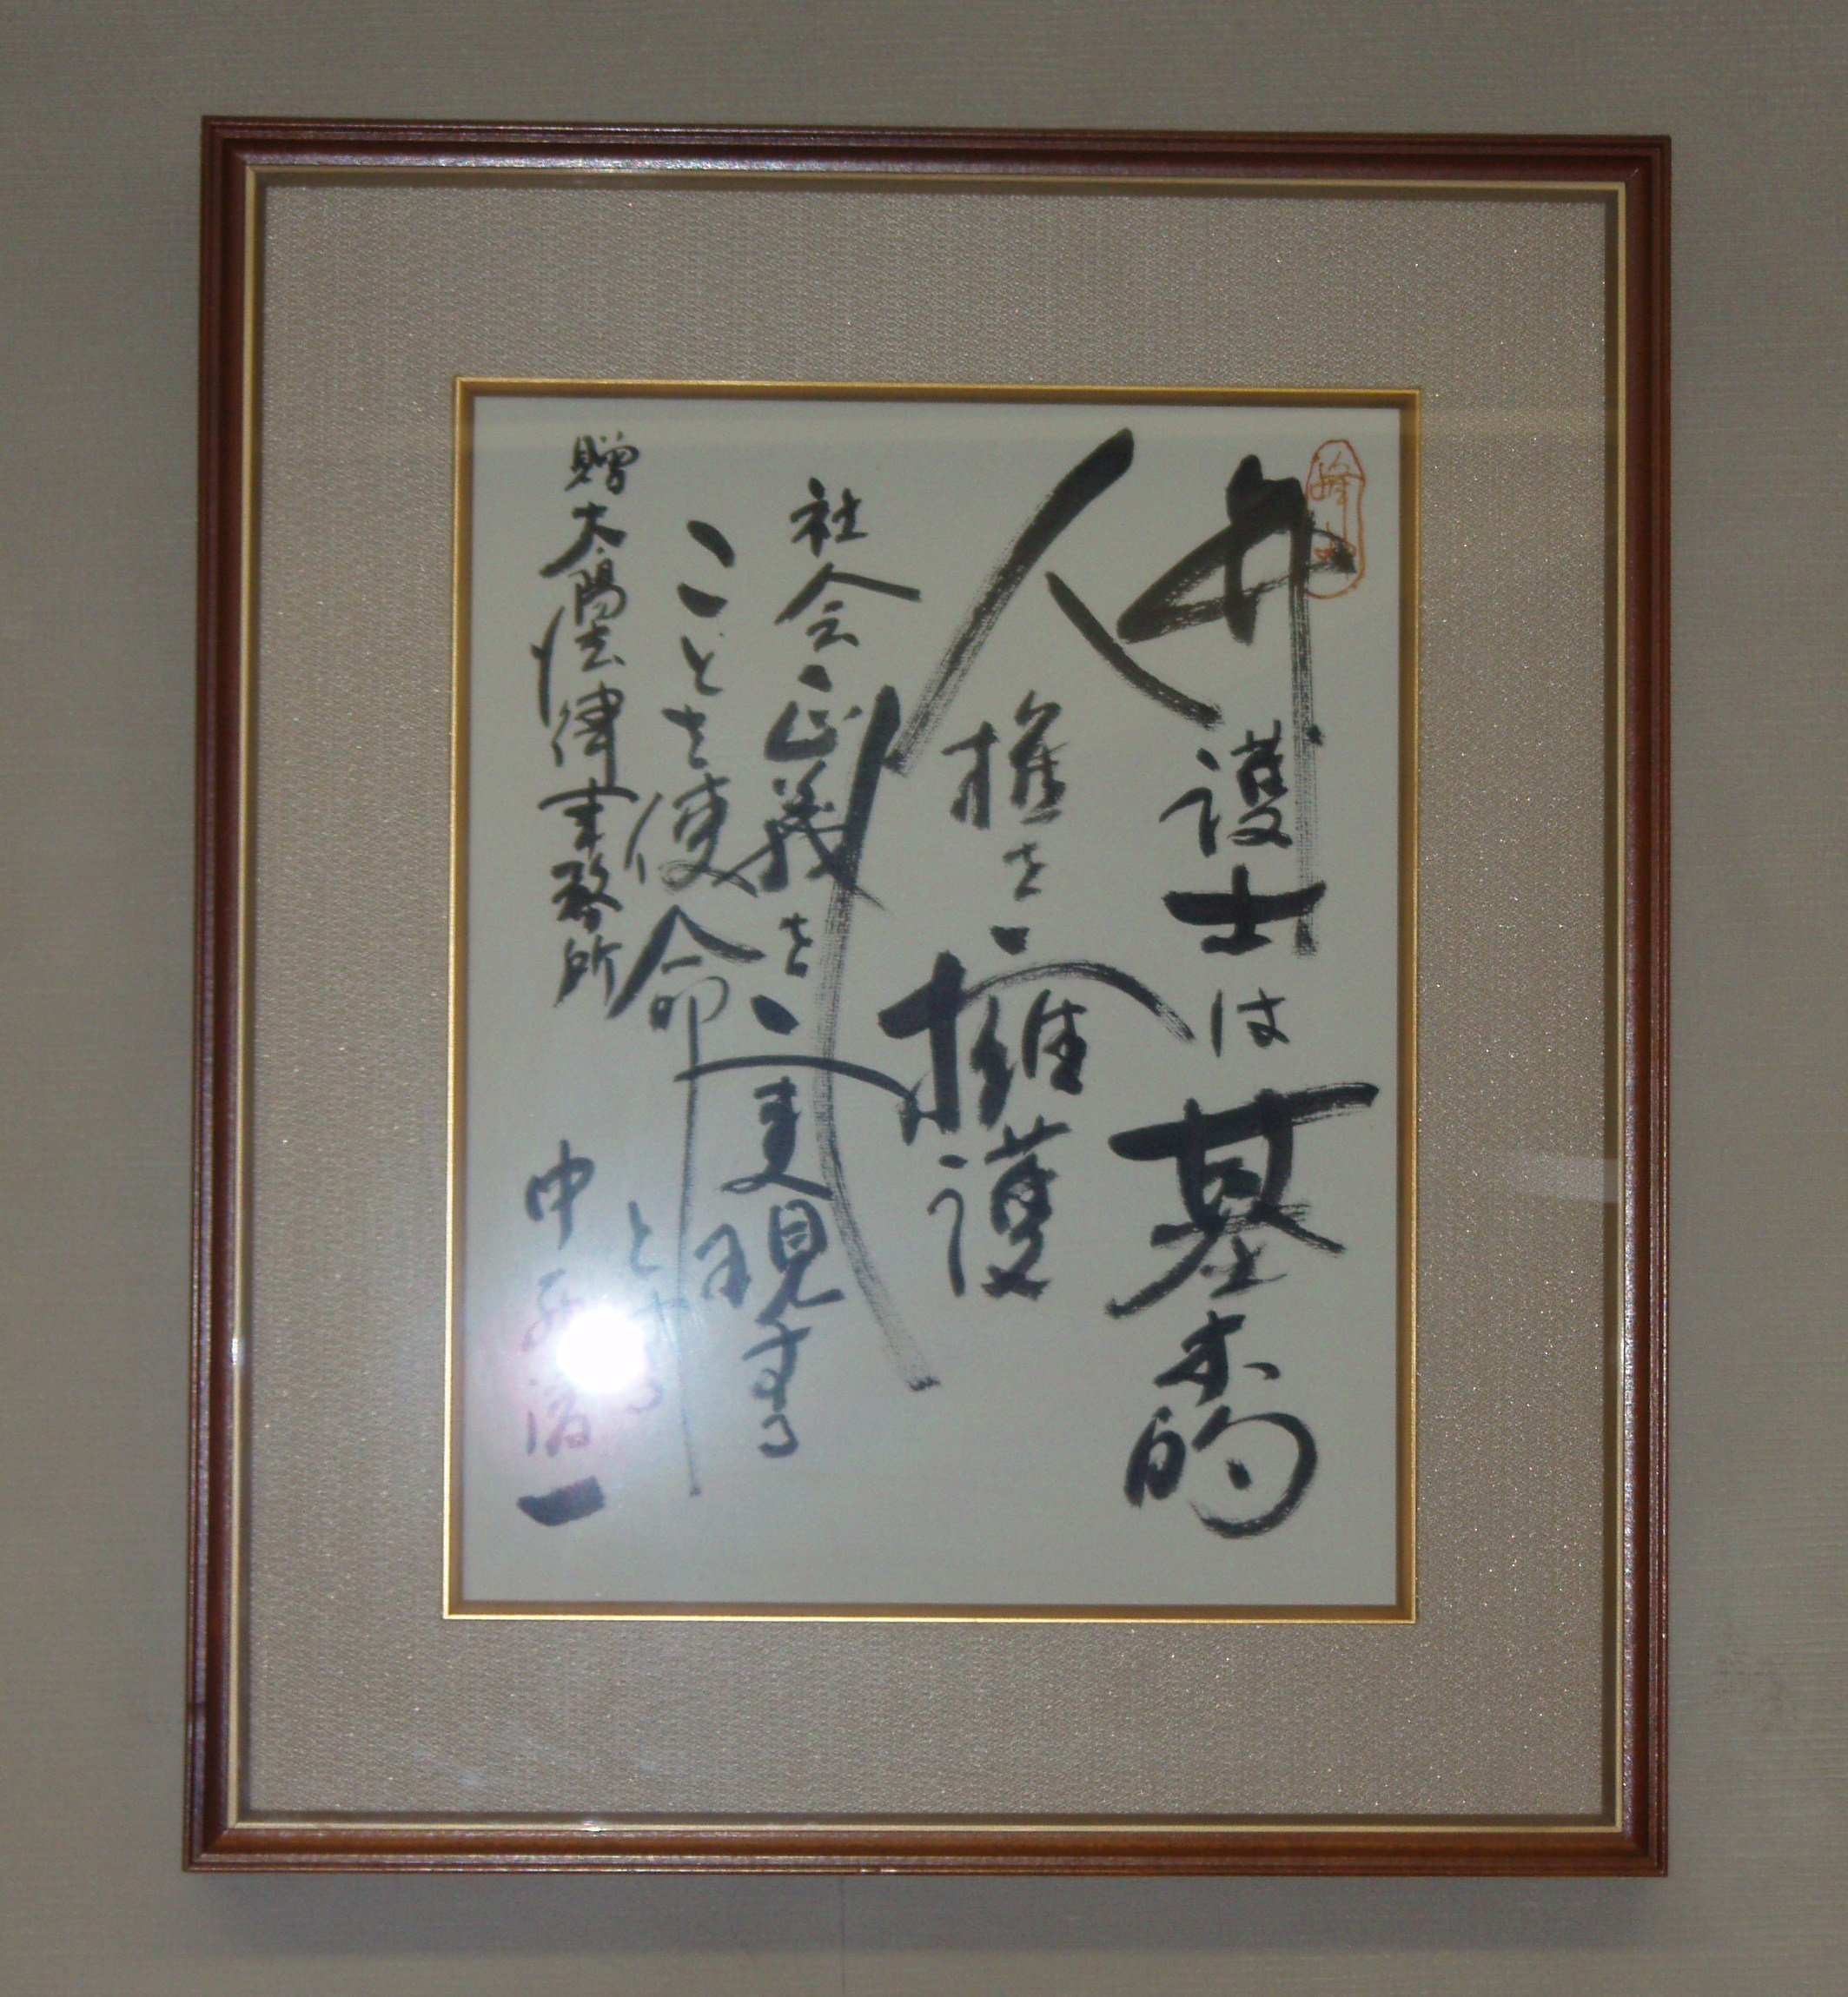 弁護士は基本的
人権を擁護
社会正義を実現する
ことを使命とする
贈太陽法律事務所
中
一